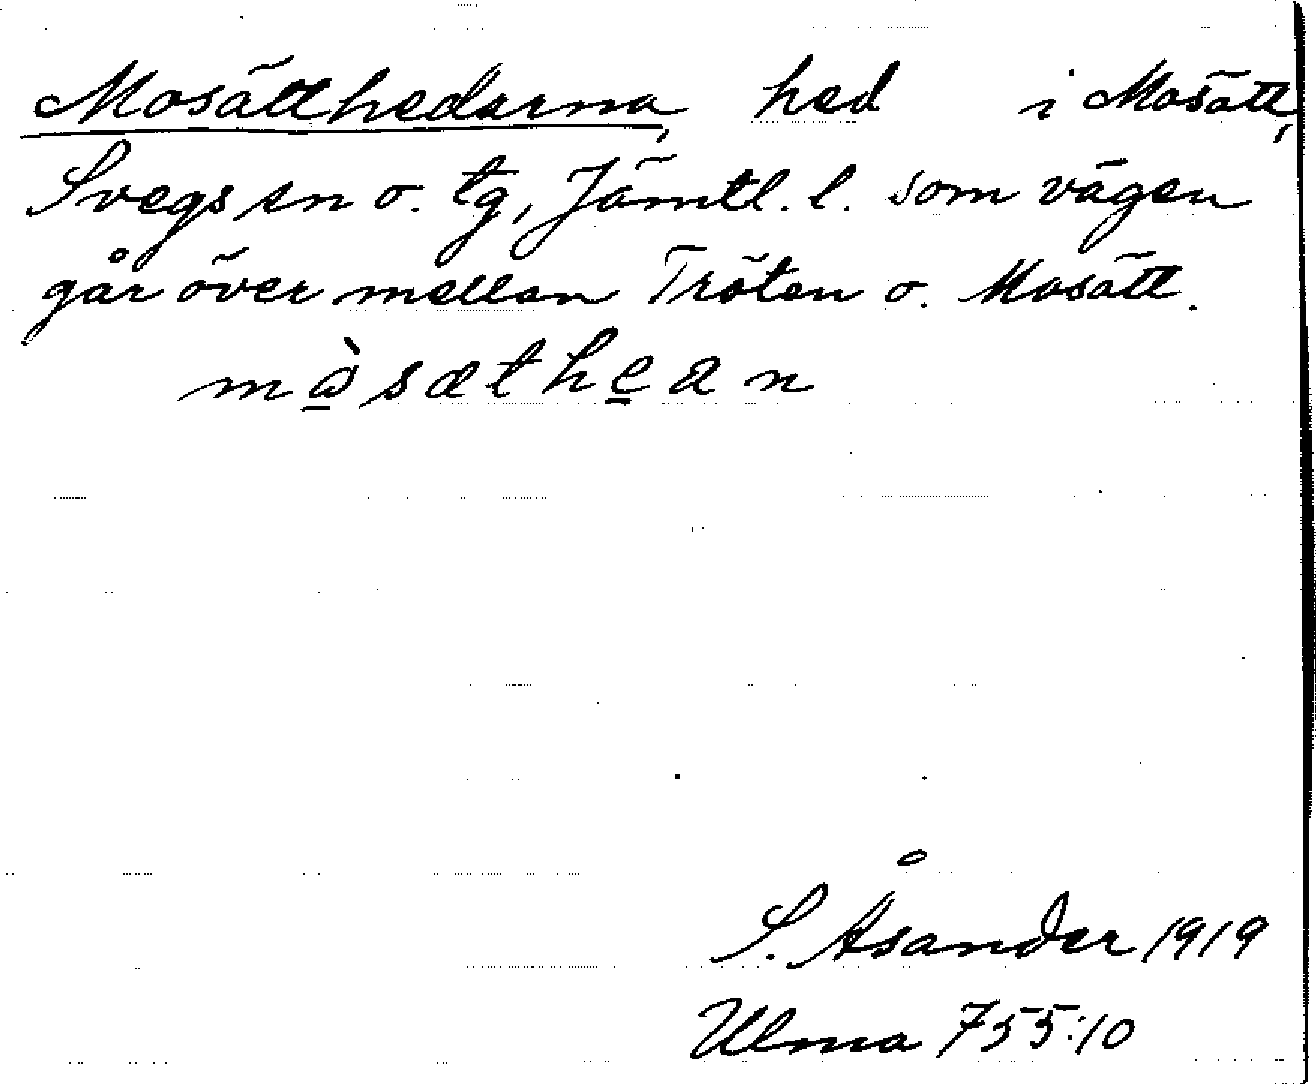 Mosätthedarna, hed i Mosätt,
Svegs sn o. tg, Jämtl. l. som vägen
går över mellan Tröten o. Mosätt.
mɷ̠̀sæthe̠an
S. Åsander 1919
Ulma 755:10